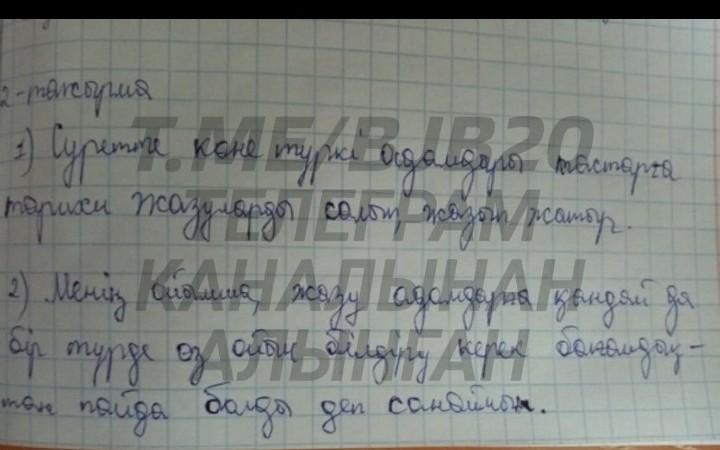 2-тапсырма
1) Суретте көне түркі адамдары тастарға
тарихи жазуларды салып, жазып жатыр.
2) Менің ойымша, жазу адамдарға қандай да
бір түрде өз ойын білдіру керек болғандық-
тан пайда болды деп санаймын.
T.ME/BJB20
ТЕЛЕГРАМ
КАНАЛЫНАН
АЛЫНҒАН